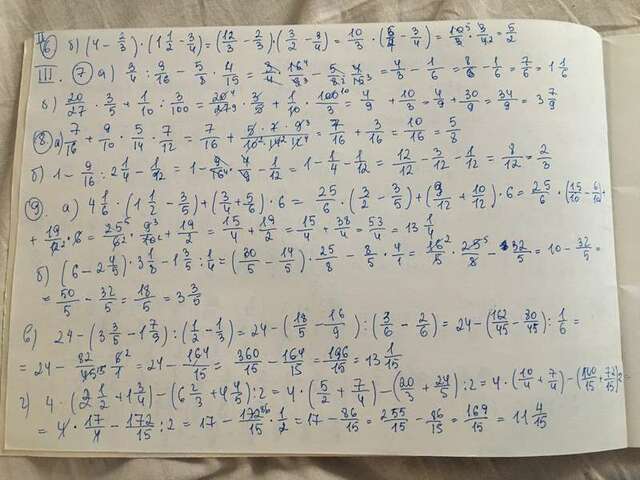 6 б) (4 − 2/3) · (1 1/2 − 3/4) = (12/3 − 2/3) · (3/2 − 3/4) = 10/3 · (6/4 − 3/4) = 10/3 · 3/4 = 5/2
III. 7 а) 3/4 : 9/16 − 5/8 · 4/15 = 3/4 · 16/9 − 5/8 · 4/15 = 4/3 − 1/6 = 8/6 − 1/6 = 7/6 = 1 1/6
б) 20/27 · 3/5 + 1/10 : 3/100 = 20/27 · 3/5 + 1/10 · 100/3 = 4/9 + 10/3 = 4/9 + 30/9 = 34/9 = 3 7/9
8 а) 7/16 + 9/10 · 5/14 · 7/12 = 7/16 + 5 · 7 · 9/10 · 14 · 12 = 7/16 + 3/16 = 10/16 = 5/8
б) 1 − 9/16 : 2 1/4 − 1/12 = 1 − 9/16 · 4/9 − 1/12 = 1 − 1/4 − 1/12 = 12/12 − 3/12 − 1/12 = 8/12 = 2/3
9 а) 4 1/6 · (1 1/2 − 3/5) + (3/4 + 5/6) · 6 = 25/6 · (3/2 − 3/5) + (9/12 + 10/12) · 6 = 25/6 · (15/10 − 6/10) +
+ 19/12 · 6 = 25/6 · 9/10 + 19/2 = 15/4 + 19/2 = 15/4 + 38/4 = 53/4 = 13 1/4
б) (6 − 2 4/5) · 3 1/8 − 1 3/5 : 1/4 = (30/5 − 14/5) · 25/8 − 8/5 · 4/1 = 16/5 · 25/8 − 32/5 = 10 − 32/5 =
= 50/5 − 32/5 = 18/5 = 3 3/5
в) 24 − (3 3/5 − 1 7/9) : (1/2 − 1/3) = 24 − (18/5 − 16/9) : (3/6 − 2/6) = 24 − (162/45 − 80/45) : 1/6 =
= 24 − 82/45 · 6/1 = 24 − 164/15 = 360/15 − 164/15 = 196/15 = 13 1/15
г) 4 · (2 1/2 + 1 3/4) − (6 2/3 + 4 4/5) : 2 = 4 · (5/2 + 7/4) − (20/3 + 24/5) : 2 = 4 · (10/4 + 7/4) − (100/15 + 72/15) : 2 =
= 4 · 17/4 − 172/15 : 2 = 17 − 172/15 · 1/2 = 17 − 86/15 = 255/15 − 86/15 = 169/15 = 11 4/15